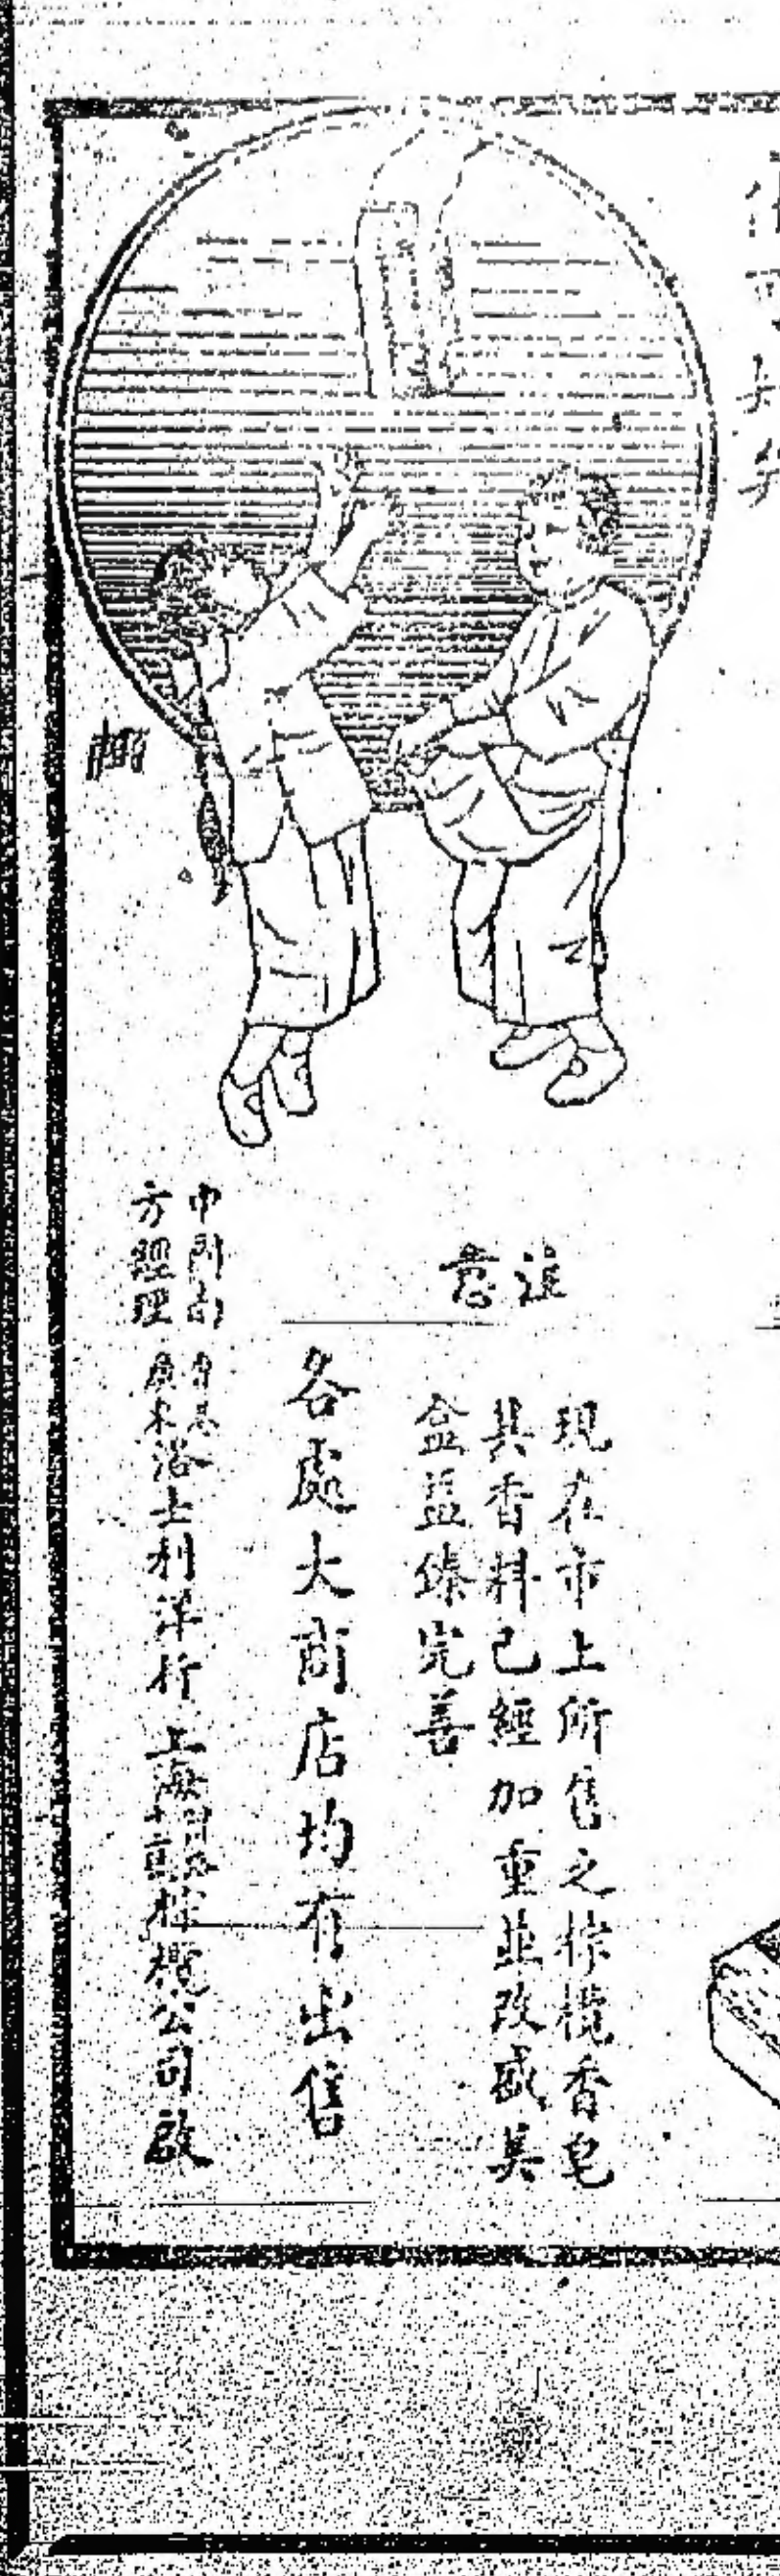 注意
現在市上所售之棕欖香皂
其香料已經加重並改盛美
盒益臻完善
各處大商店均有出售
中國南方經理
洛士利洋行 上海 棕欖公司啟